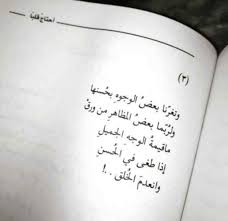 احتاج قلبا
(٣)
وتغرّنا بعضُ الوجوهِ بحُسنها
ولربّما بعضُ المظاهرِ من ورقْ
ماقيمةُ الوجهِ الجميلِ
إذا طغى في الحُسنِ
وانعدمَ الخُلق ..!